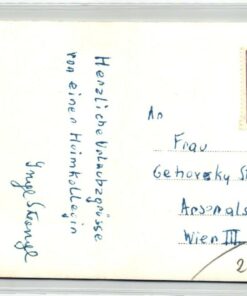 Herzliche Urlaubsgrüsse
von einer Heimkollegin
Inge Strengl
An
Frau
Gehovsky St
Arsenals
Wien III
2